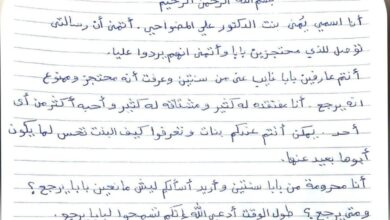 بسم الله الرحمن الرحيم
أنا اسمي يُمنى بنت الدكتور علي المضواحي. أتمنى أن رسالتي
توصل للذي محتجزين بابا وأتمنى انهم يردوا عليا.
أنتم عارفين بابا غايب عني من سنتين وعرفت أنه محتجز وممنوع
انه يرجع. أنا مفتقده له كثير ومشتاقة له كثير وأحبه أكثر من أي
أحد. يمكن أنتم عندكم بنات وتعرفوا كيف البنت تحس لما يكون
أبوها بعيد عنها.
أنا محرومة من بابا سنتين وأريد أسألكم ليش مانعين بابا يرجع؟
ومتى يرجع؟ طول الوقت أدعي الله لكم تسمحوا لبابا يرجع.